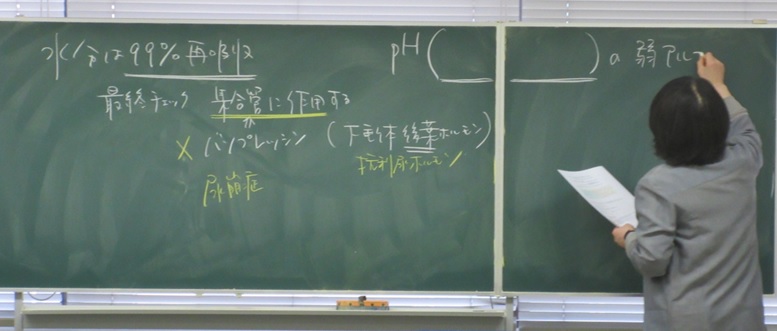 水分は99%再吸収
最終チェック 集合管に作用する
× バソプレッシン (下垂体後葉ホルモン)
抗利尿ホルモン
尿崩症
pH( )の弱アルカ